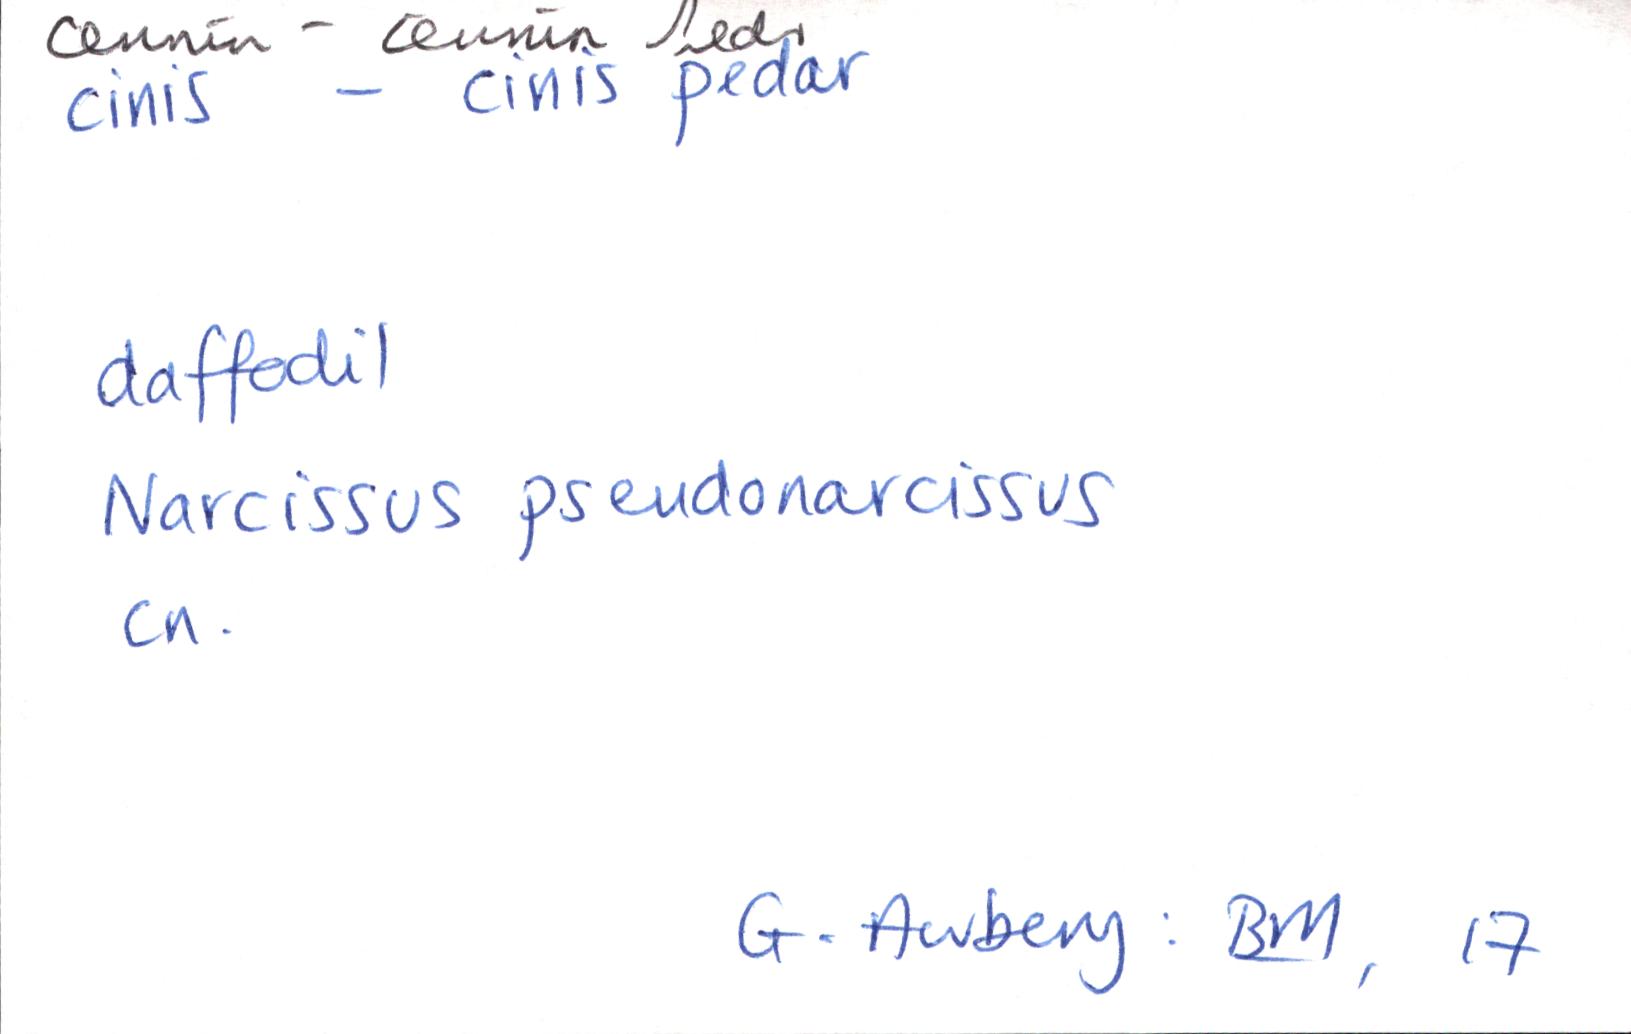 cennin - cennin Pedr
cinis - cinis pedar
daffodil
Narcissus pseudonarcissus
cn.
G. Awbery: BM, 17